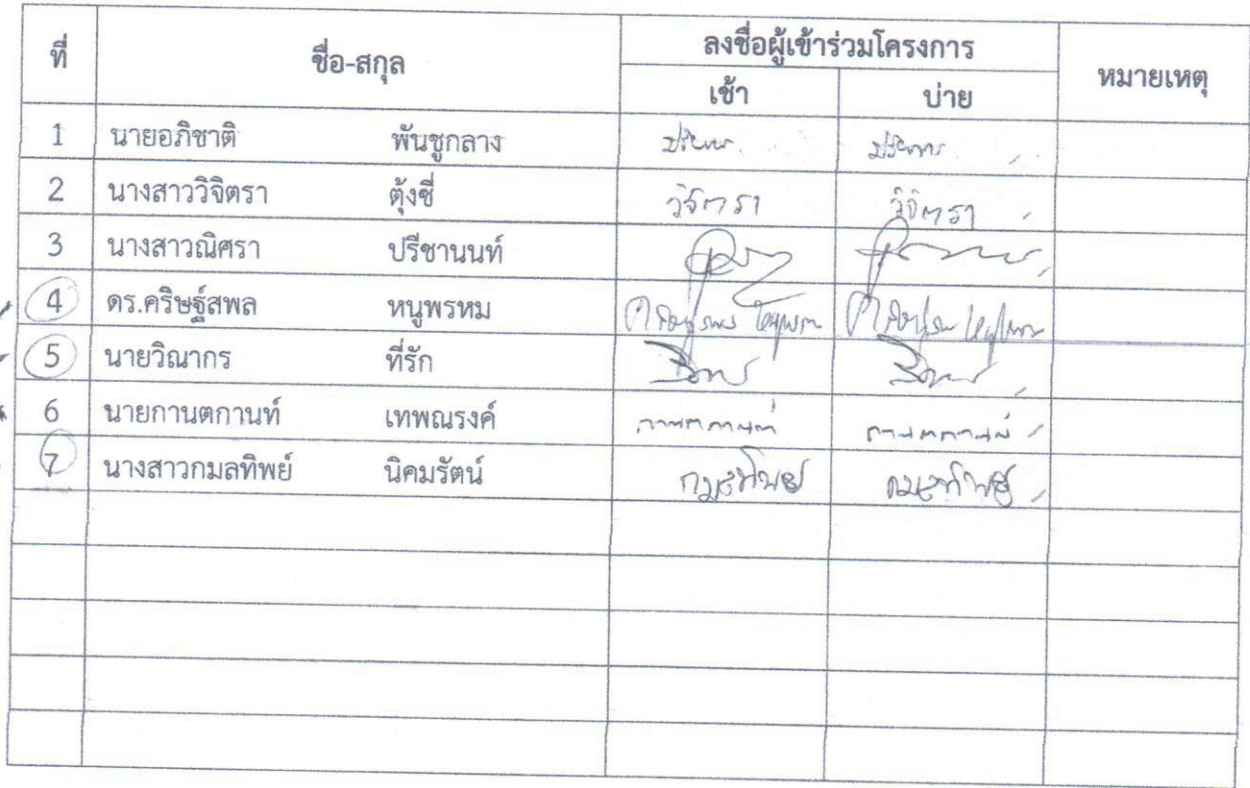 ที่ ชื่อ-สกุล ลงชื่อผู้เข้าร่วมโครงการ หมายเหตุ
เช้า บ่าย
1 นายอภิชาติ พันชูกลาง
2 นางสาววิจิตรา ตุ้งซี่ วิจิตรา วิจิตรา
3 นางสาวณิศรา ปรีชานนท์
4 ดร.คริษฐ์สพล หนูพรหม
5 นายวิณากร ที่รัก
6 นายกานตกานท์ เทพณรงค์ กานตกานท์ กานตกานท์
7 นางสาวกมลทิพย์ นิคมรัตน์ กมลทิพย์ กมลทิพย์